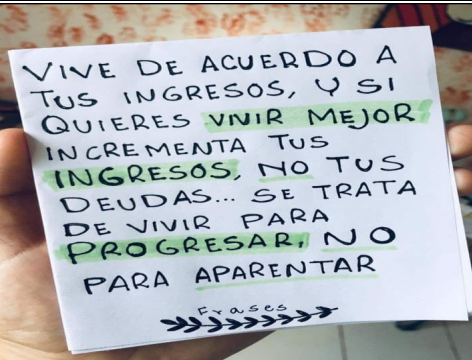 VIVE DE ACUERDO A
TUS INGRESOS, Y SI
QUIERES VIVIR MEJOR
INCREMENTA TUS
INGRESOS, NO TUS
DEUDAS... SE TRATA
DE VIVIR PARA
PROGRESAR, NO
PARA APARENTAR
Frases